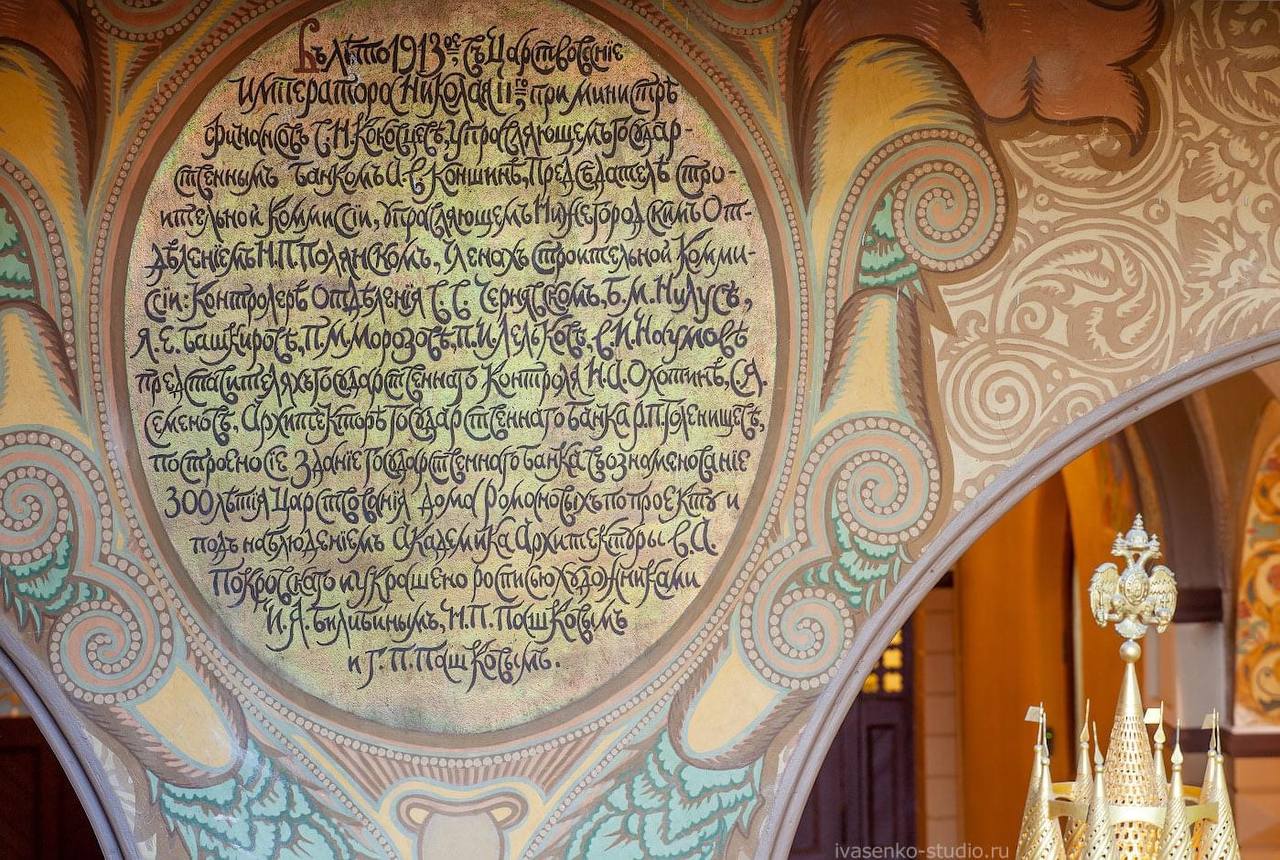 Въ лѣто 1913ое въ Царствованіе
Императора Николая IIго при Министрѣ
Финансовъ В. Н. Коковцевѣ, управляющемъ Государ-
ственнымъ Банкомъ А. В. Коншинѣ, Предсѣдателѣ Стро-
ительной Коммиссіи, управляющемъ Нижегородскимъ От-
дѣленіемъ Н. П. Полянскомъ, Членохъ Строительной Комми-
ссіи: Контролерѣ Отдѣленія С. С. Чернявскомъ, Б. М. Нилусѣ,
Я. Е. Башкировѣ, П. М. Морозовѣ, П. И. Лельковѣ, В. И. Наумовѣ
представителяхъ Государственнаго Контроля Н. А. Охотинѣ, С. Я.
Семеновѣ, Архитекторѣ Государственнаго Банка Р. П. Голенищевѣ,
построено сіе Зданіе Государственнаго Банка въ ознаменованіе
300 лѣтія Царствованія Дома Романовыхъ по проекту и
подъ наблюденіемъ Академика Архитектуры В. А.
Покровскаго и украшено росписью художниками
И. Я. Билибинымъ, Н. П. Пашковымъ
и Г. П. Пашковымъ.
ivasenko-studio.ru